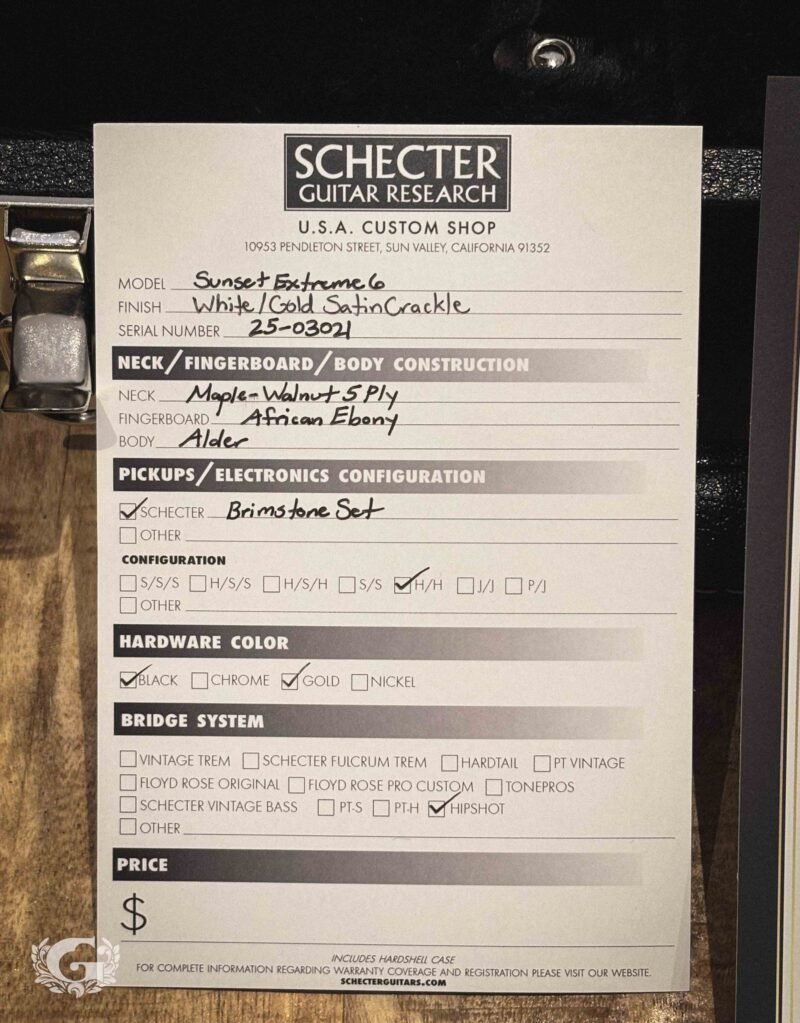 SCHECTER
GUITAR RESEARCH
U.S.A. CUSTOM SHOP
10953 PENDLETON STREET, SUN VALLEY, CALIFORNIA 91352
MODEL Sunset Extreme 6
FINISH White/Gold Satin Crackle
SERIAL NUMBER 25-03021
NECK/FINGERBOARD/BODY CONSTRUCTION
NECK Maple-Walnut 5 Ply
FINGERBOARD African Ebony
BODY Alder
PICKUPS/ELECTRONICS CONFIGURATION
SCHECTER Brimstone Set
OTHER
CONFIGURATION
S/S/S H/S/S H/S/H S/S H/H J/J P/J
OTHER
HARDWARE COLOR
BLACK CHROME GOLD NICKEL
BRIDGE SYSTEM
VINTAGE TREM SCHECTER FULCRUM TREM HARDTAIL PT VINTAGE
FLOYD ROSE ORIGINAL FLOYD ROSE PRO CUSTOM TONEPROS
SCHECTER VINTAGE BASS PT-S PT-H HIPSHOT
OTHER
PRICE
$
INCLUDES HARDSHELL CASE
FOR COMPLETE INFORMATION REGARDING WARRANTY COVERAGE AND REGISTRATION PLEASE VISIT OUR WEBSITE.
SCHECTERGUITARS.COM
G